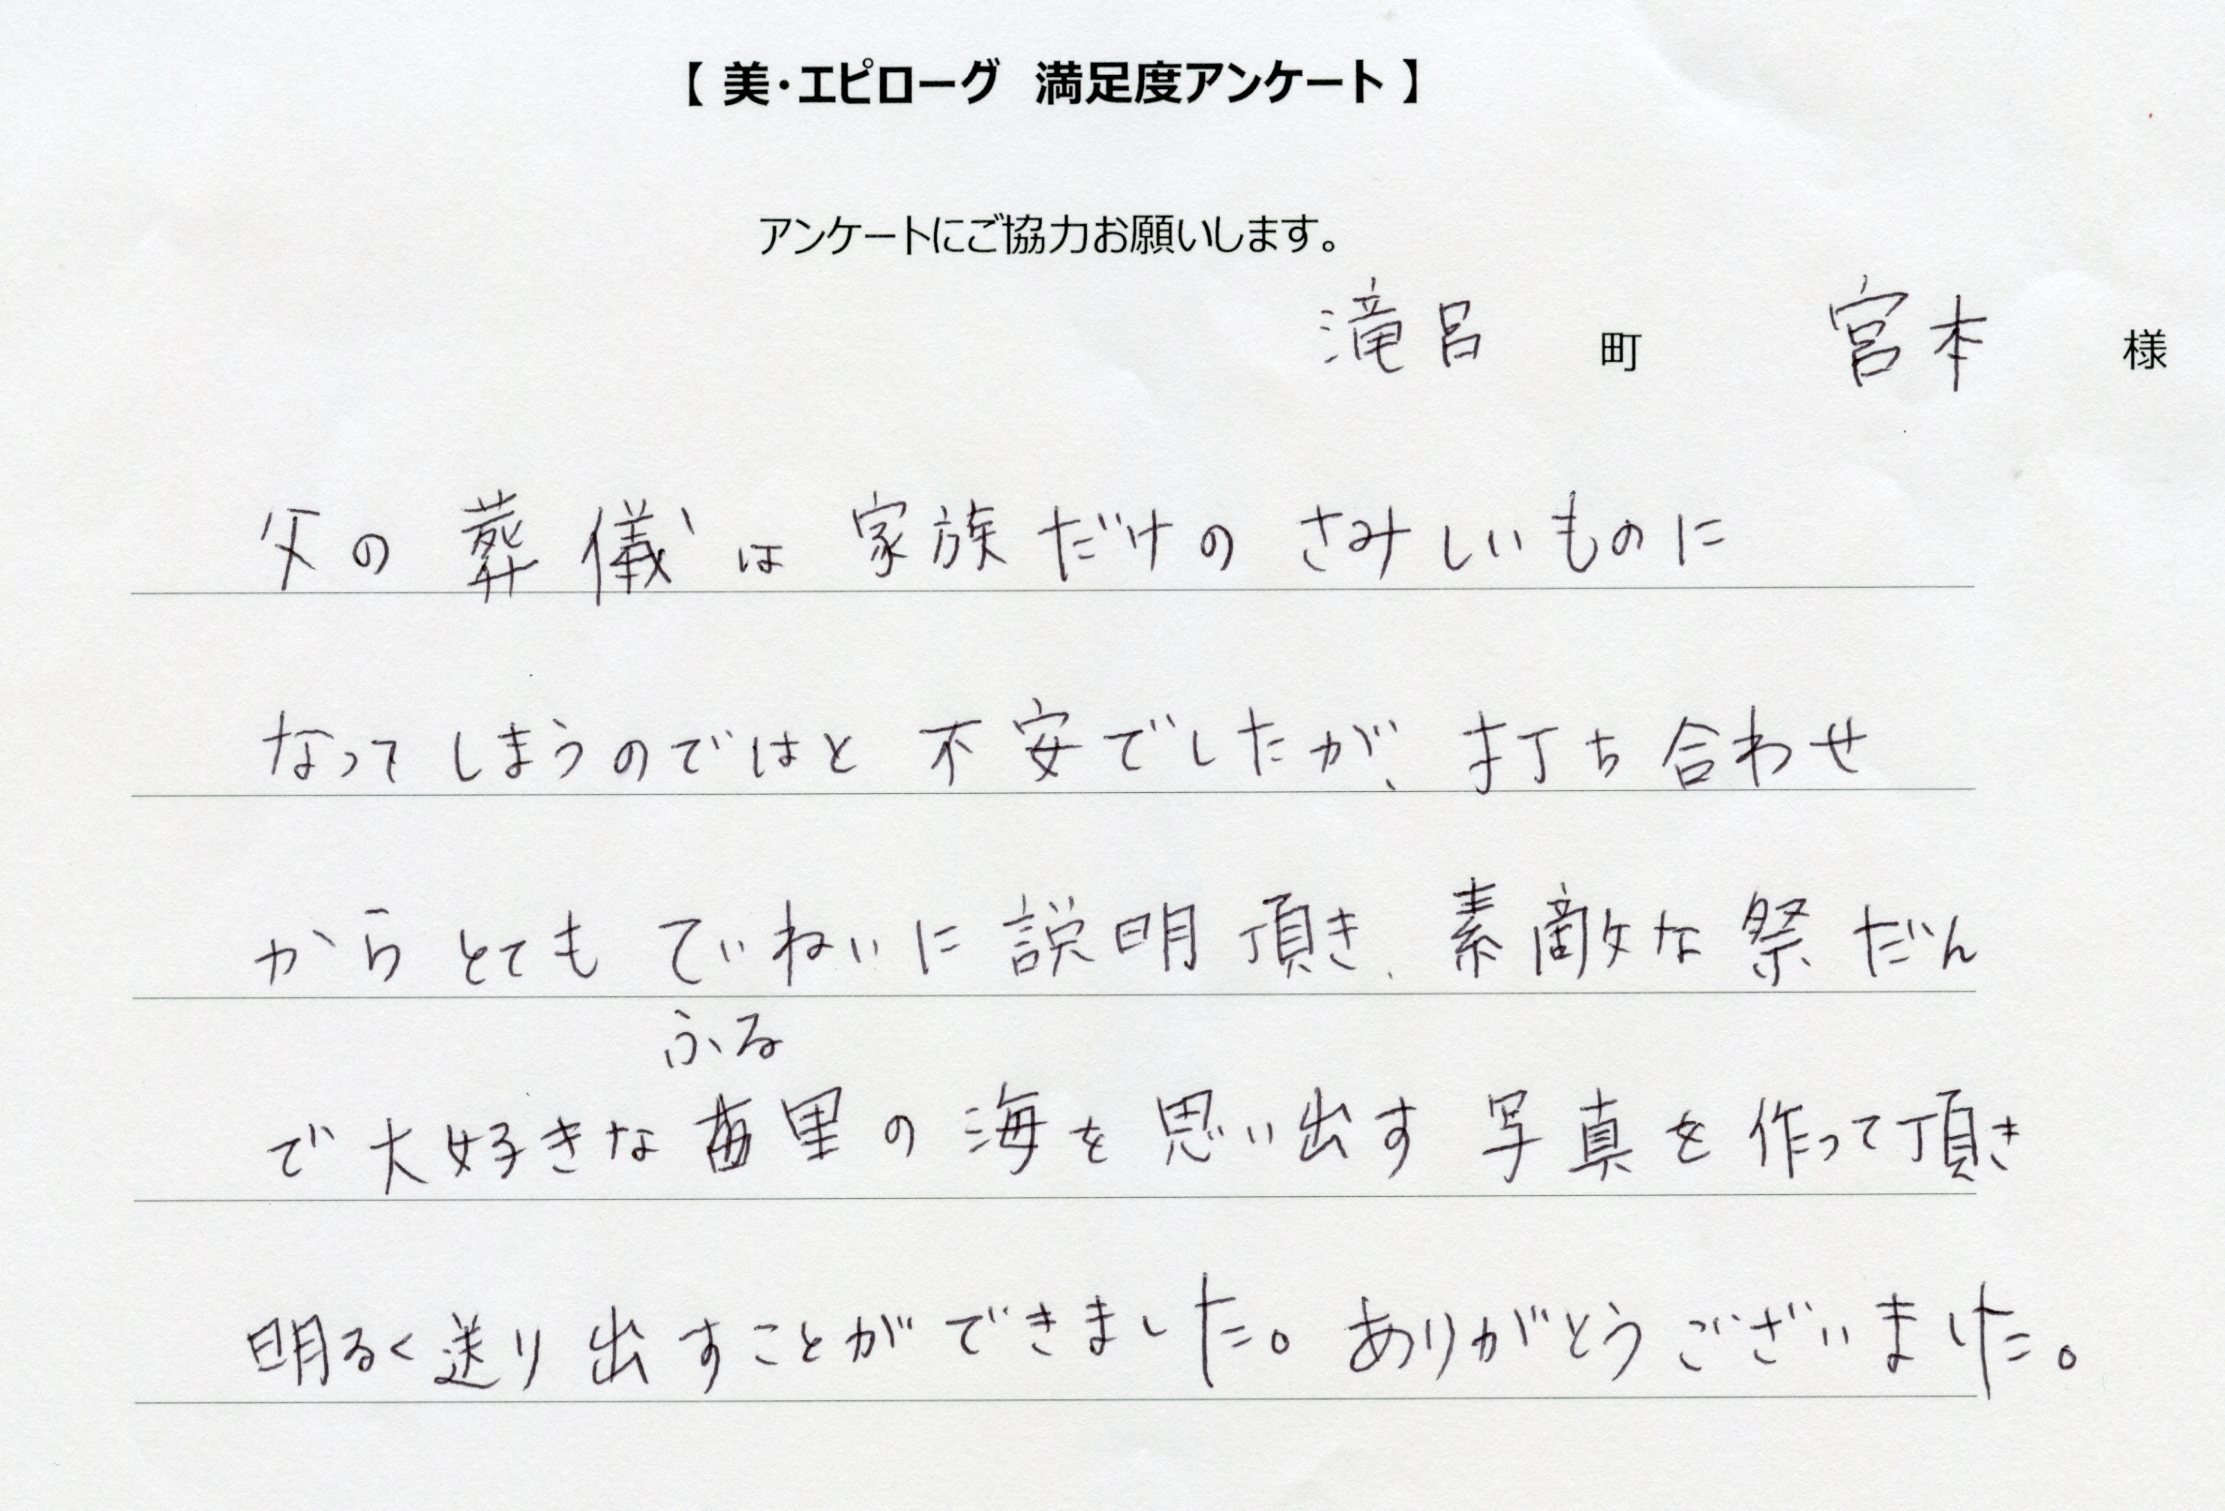 【 美・エピローグ 満足度アンケート 】
アンケートにご協力お願いします。
滝呂 町 宮本 様
父の葬儀は家族だけのさみしいものに
なってしまうのではと不安でしたが、打ち合わせ
からとてもていねいに説明頂き、素敵な祭だん
ふる
で大好きな里の海を思い出す写真を作って頂き
明るく送り出すことができました。ありがとうございました。